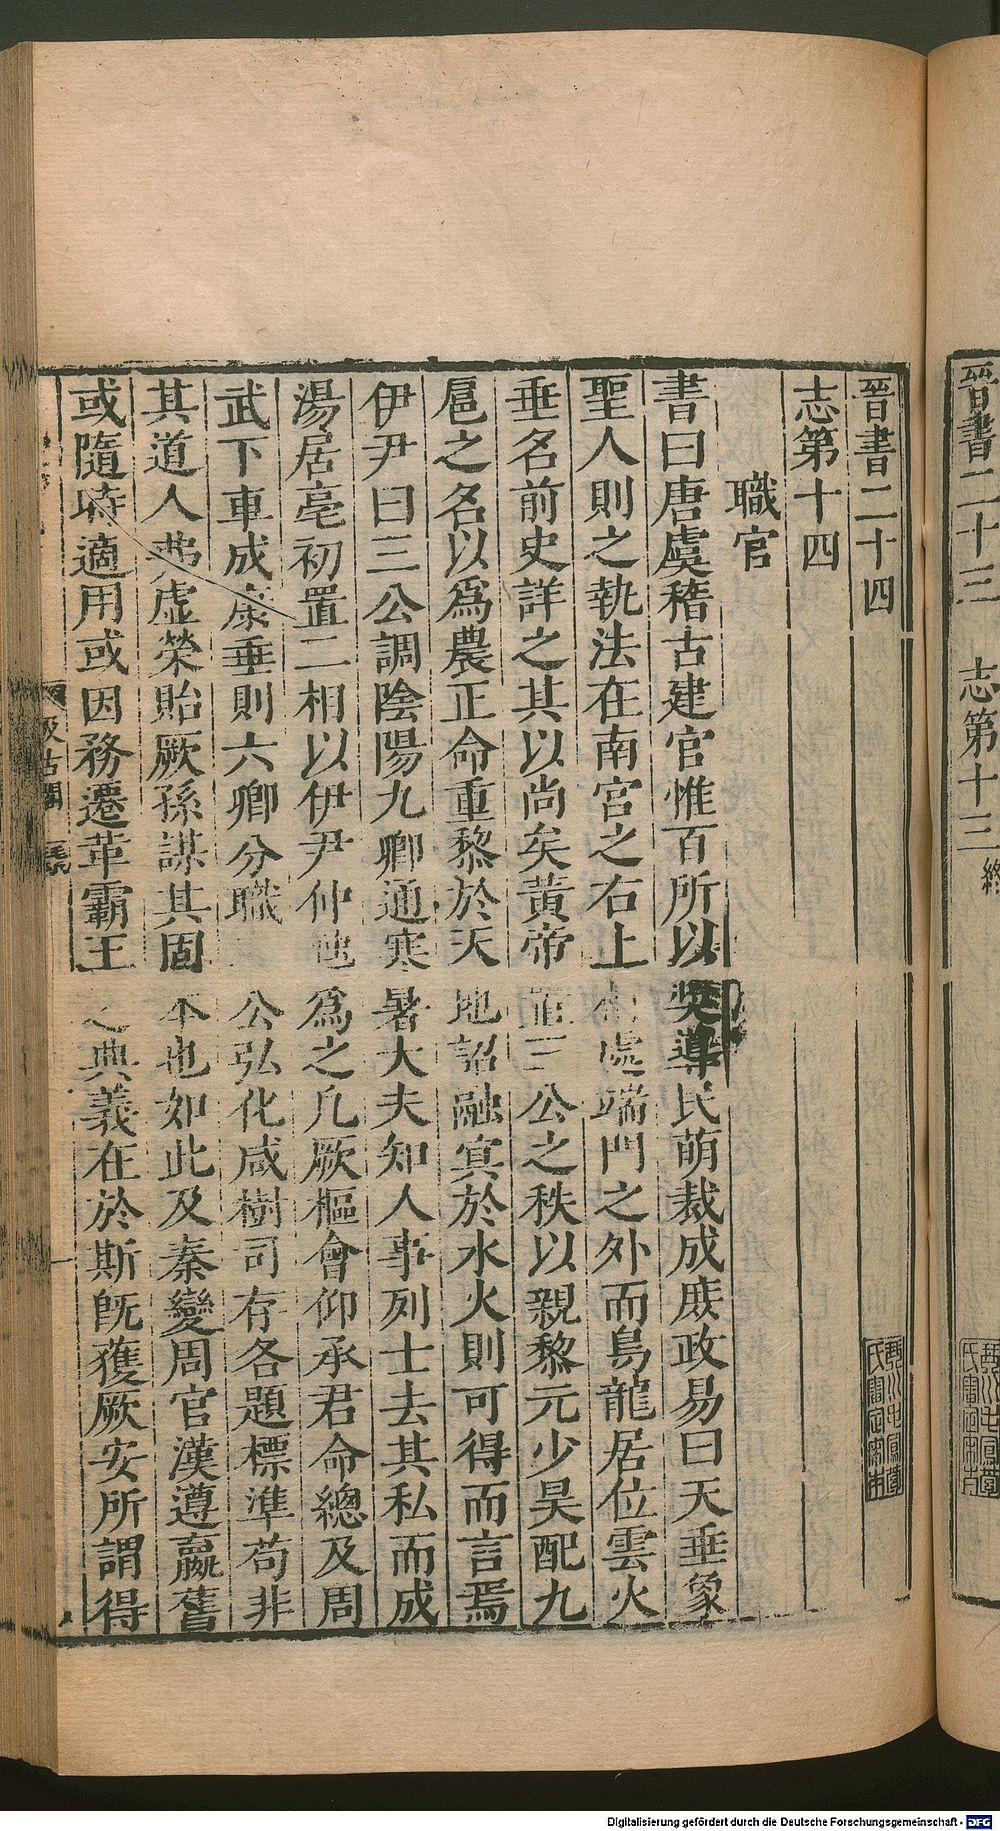 晉書二十三　志第十三終
晉書二十四
志第十四
職官
書曰唐虞稽古建官惟百所以奬導民萌裁成庶政易曰天垂象
聖人則之執法在南宮之右上相處端門之外而鳥龍居位雲火
垂名前史詳之其以尚矣黃帝置三公之秩以親黎元少昊配九
扈之名以爲農正命重黎於天地詔融冥於水火則可得而言焉
伊尹曰三公調陰陽九卿通寒暑大夫知人事列士去其私而成
湯居亳初置二相以伊尹仲虺爲之凡厥樞會仰承君命總及周
武下車成康垂則六卿分職公弘化咸樹司存各題標準苟非
其道人弗虛榮貽厥孫謀其固本也如此及秦變周官漢遵嬴舊
或隨時適用或因務遷革霸王之典義在於斯旣獲厥安所謂得
汲古閣
Digitalisierung gefördert durch die Deutsche Forschungsgemeinschaft - DFG